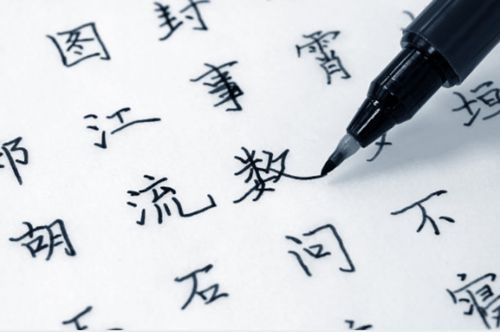 图封
江事霄
胡流数垣
石问不